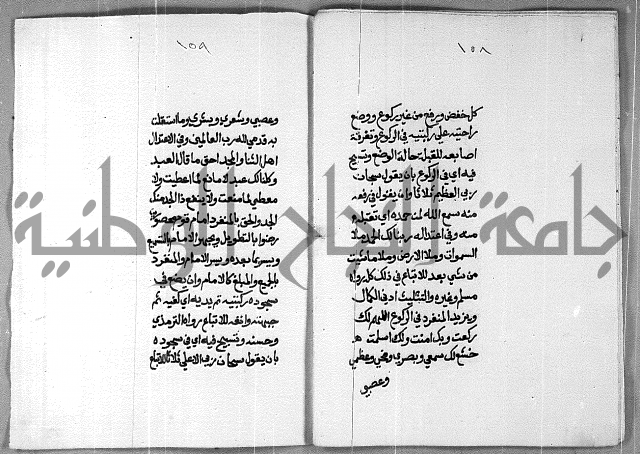 ١٥٨
كل خفض ورفع من غير ركوع ووضع
راحتيه على ركبتيه في الركوع وتفرقة
اصابعه للقبلة حالة الوضع وتسبيح
فيه اي في الركوع بان يقول سبحان
ربي العظيم ثلاثا وان يقول في رفعه
منه سمع الله لمن حمده اي تقبله
منه وفي اعتداله ربنا لك الحمد ملا
السموات وملا الارض وملا ما شئت
من شي بعد للاتباع في ذلك كله رواه
مسلم وغيره والتثليث ادنى الكمال
ويزيد المنفرد في الركوع اللهم لك
ركعت وبك امنت ولك اسلمت
خشع لك سمعي وبصري ومخي وعظمي
وعصبي
١٥٩
وعصبي وشعري وبشري وما استقلت
به قدمي لله رب العالمين وفي الاعتدال
اهل الثنا والمجد احق ما قال العبد
وكلنا لك عبد لا مانع لما اعطيت ولا
معطي لما منعت ولا ينفع ذا الجد منك
الجد والحق بالمنفرد امام قوم محصورين
رضوا بالتطويل ويجهر الامام بالتسميع
ويسر بما بعده ويسر الامام والمنفرد
بالجميع والمبلغ كالامام وان يضع في
سجوده ركبتيه ثم يديه اي كفيه ثم
جبهته وانفه للاتباع رواه الترمذي
وحسنه وتسبيح فيه اي في سجوده
بان يقول سبحان ربي الاعلى ثلاثا للاتباع
جامعة النجاح الوطنية